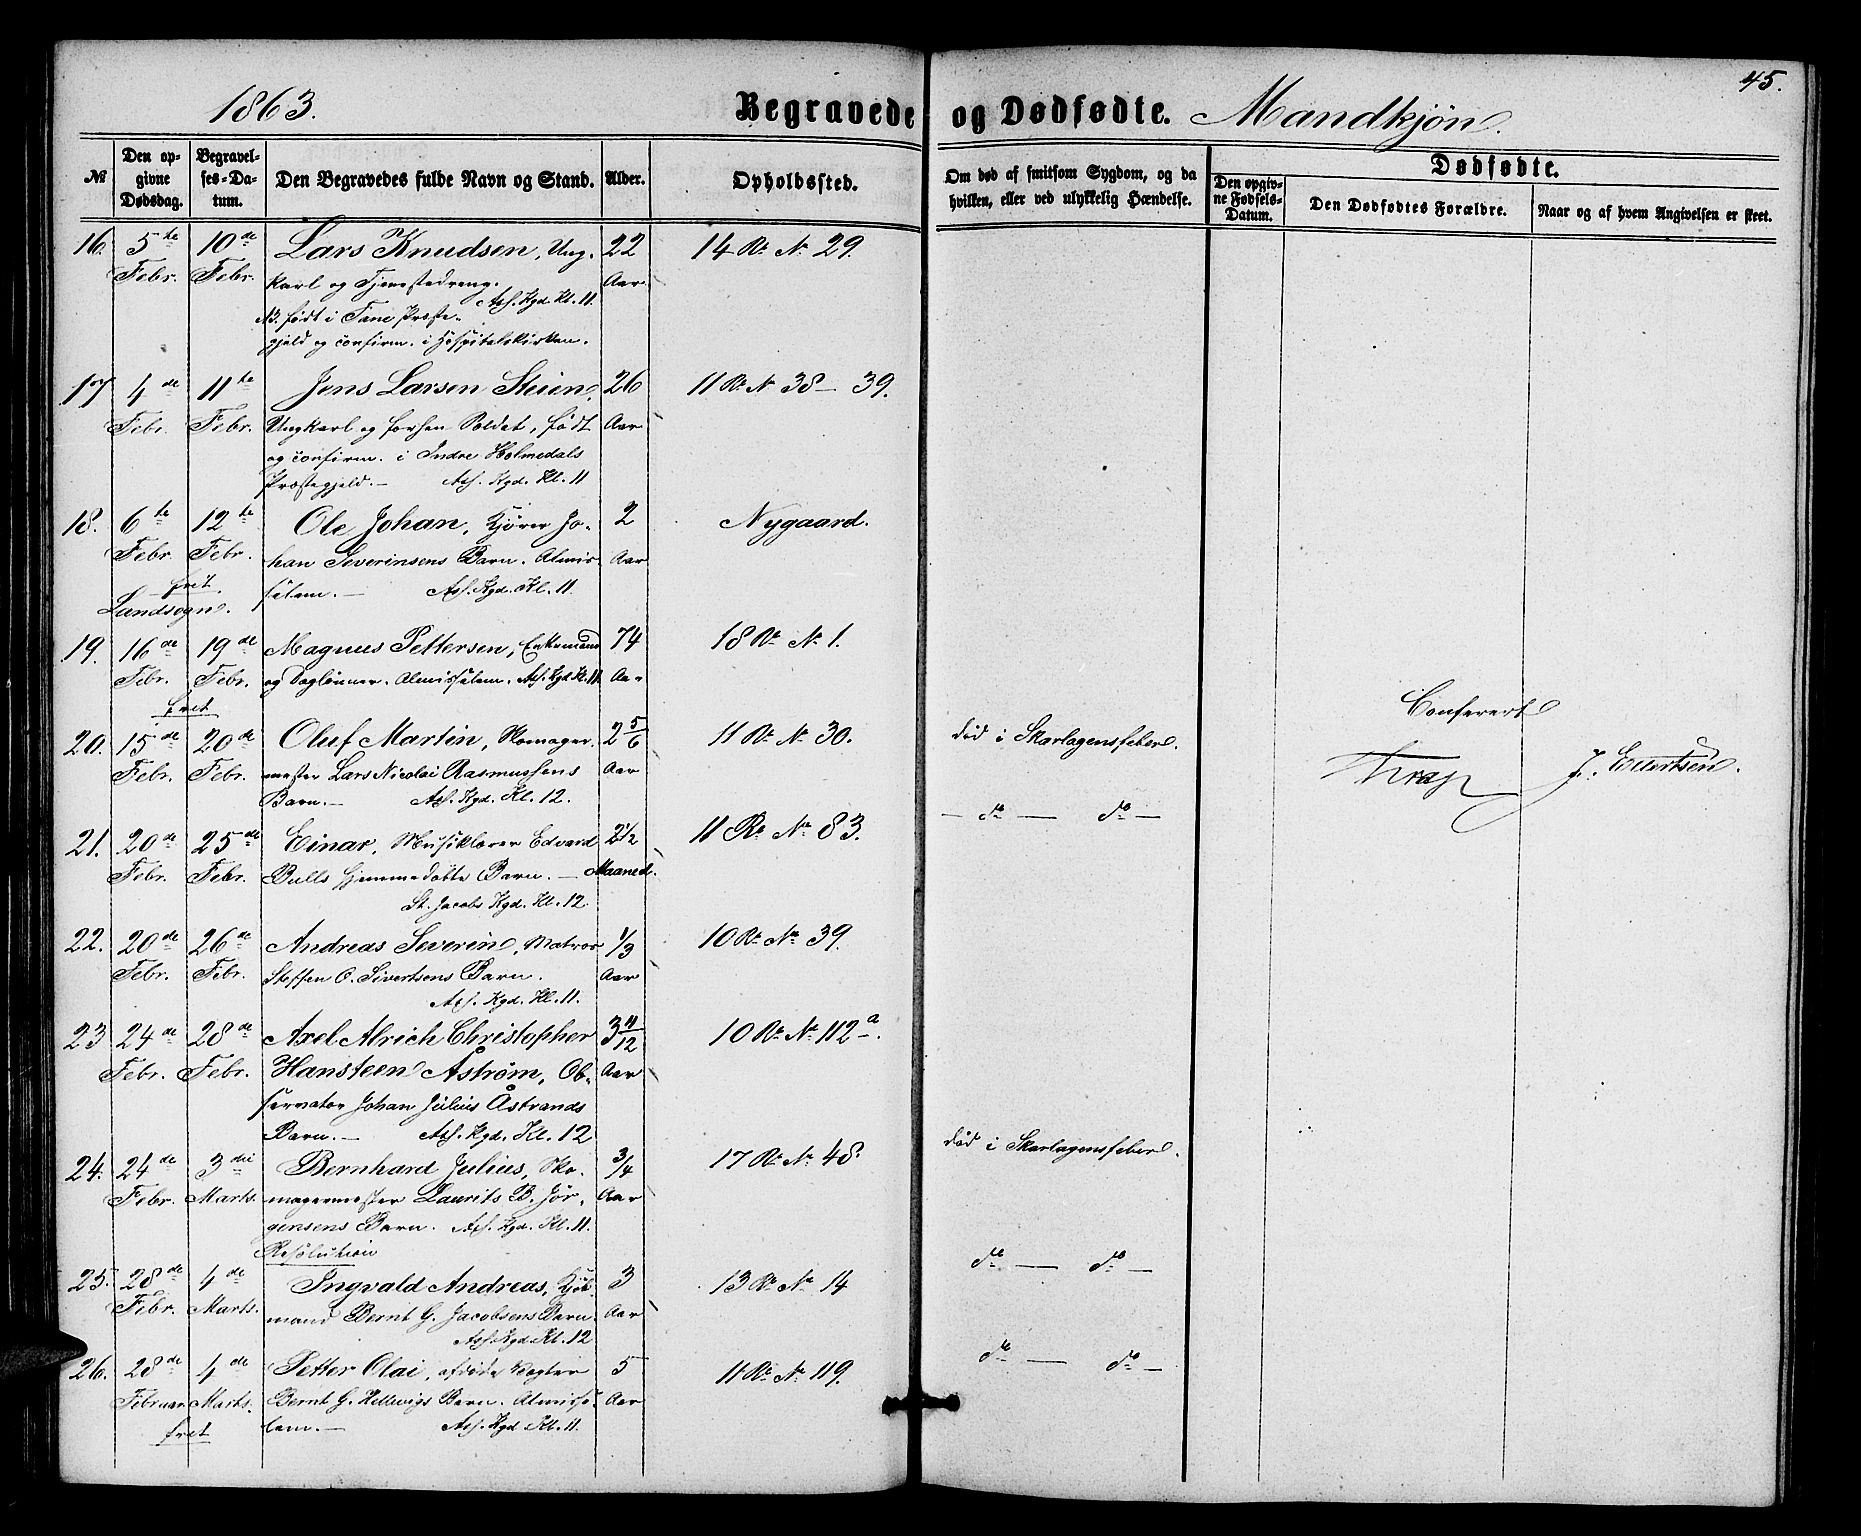 45.
1863. Begravede og Dødfødte. Mandkjøn.
№ Den opgivne Dødsdag. Begravelses-Datum. Den Begravedes fulde Navn og Stand. Alder. Opholdssted. Om død af smitsom Sygdom, og da hvilken, eller ved ulykkelig Hændelse. Dødfødte. Den opgivne Fødsels-Datum. Den Dødfødtes Forældre. Naar og af hvem Angivelsen er skeet.
16. 5te 10de Lars Knudsen, Ung- 22 14 Rd. N. 29.
Febr. Febr. karl og Tjenestedreng. Aar
Ass. Kgd. Kl. 11.
NB. født i Fane Præste-
gjeld og confirm. i Hospitalskirken.
17 4de 11te Jens Larsen Steien, 26 11 Rd. N 38 — 39.
Febr. Febr. Ungkarl og forhen Soldat, født Aar
og confirm. i Indre Holmedals
Præstegjeld. — Ass. Kgd. Kl. 11
18. 6te 12te Ole Johan, Kjører Jo- 2 Nygaard.
Febr. Febr. han Severinsens Barn. Almis- Aar
fret selem. — Ass. Kgd. Kl. 11.
Landsogn.
19. 16de 19de Magnus Pettersen, Enkemand 74 18 Rd. N. 1.
Febr. Febr. og Daglønner. Almisselem. Ass. Kgd Kl. 11. Aar
fret
Confereret
20. 15de 20de Oluf Martin, Skomager- 2 5/6 11 Rd. N. 30. død i Skarlagensfeber.
Febr. Febr. mester Lars Nicolai Rasmussens Aar
Barn. — Ass. Kgd. Kl. 12.
J. Ellertsen.
21. 20de 25de Einar, Musiklærer Edvard 2 1/2 11 Rd. No 83. — do — do —
Febr. Febr. Bulls hjemmedøbte Barn. — Maaned.
St. Jacobs Kgd. Kl. 12.
22. 20de 26de Andreas Severin, Matros 1/3 10 Rd. No 39.
Febr. Febr. Steffen O. Sivertsens Barn. Aar
Ass. Kgd. Kl. 11.
23 24de 28de Axel Alrich Christopher 3 11/12 10 Rd. No 112a.
Febr. Febr. Hansteen Åstrøm, Ob- Aar
servator Johan Julius Åstrands
Barn. — Ass. Kgd. Kl. 12
24. 24de 3die Bernhard Julius, Sko- 3/4 17 Rd. No 48. død i Skarlagensfeber.
Febr. Marts. magermester Laurits B. Jør- Aar
gensens Barn. Ass. Kgd. Kl. 11.
Resolution
25. 28de 4de Ingvald Andreas, Kjøb- 3 13 Rd. No 14 do — do —
Febr. Marts. mand Bernt G. Jacobsens Barn. Aar
Ass. Kgd Kl. 12
26. 28de 4de Petter Olai, afdøde Vægter 5 11 Rd. No 119. do — do —
Februar Marts. Bernt G. Hellewigs Barn. Almisse- Aar
fret lem. — Ass. Kgd Kl. 11.